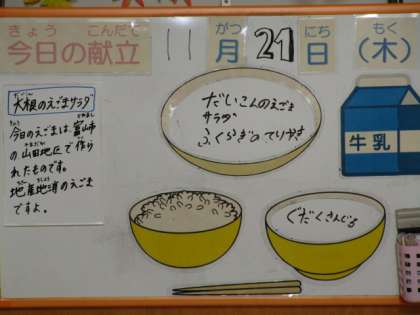 きょう こんだて
今日の献立
11
がつ
月
21
にち
日
もく
(木)
だいこん
大根のえごまサラダ
きょう とやまし
今日のえごまは、富山市
やまだ
の山田地区で作ら
れたものです。
ちさんちしょう
地産地消のえごま
ですよ。
だいこんのえごま
サラダ
ふくらぎのてりやき
牛乳
ぐだくさんじる